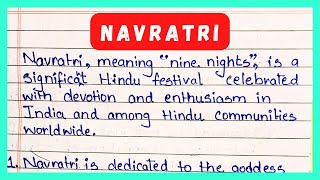 NAVRATRI
Navratri, meaning "nine nights", is a
significat Hindu festival celebrated
with devotion and enthusiasm in
India and among Hindu communities
worldwide.
1. Navratri is dedicated to the goddess